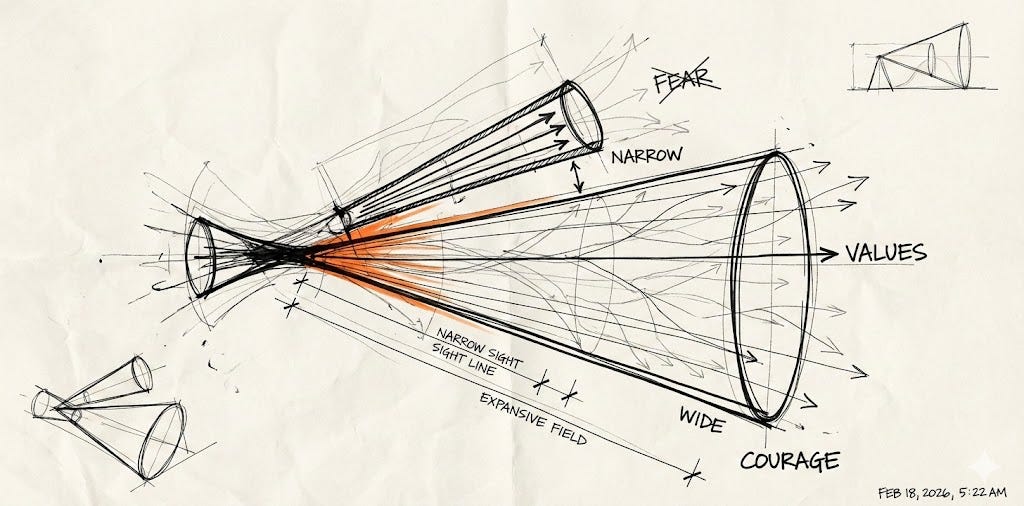 FEAR
NARROW
VALUES
NARROW SIGHT
SIGHT LINE
EXPANSIVE FIELD
WIDE
COURAGE
FEB 18, 2026, 5:22 AM